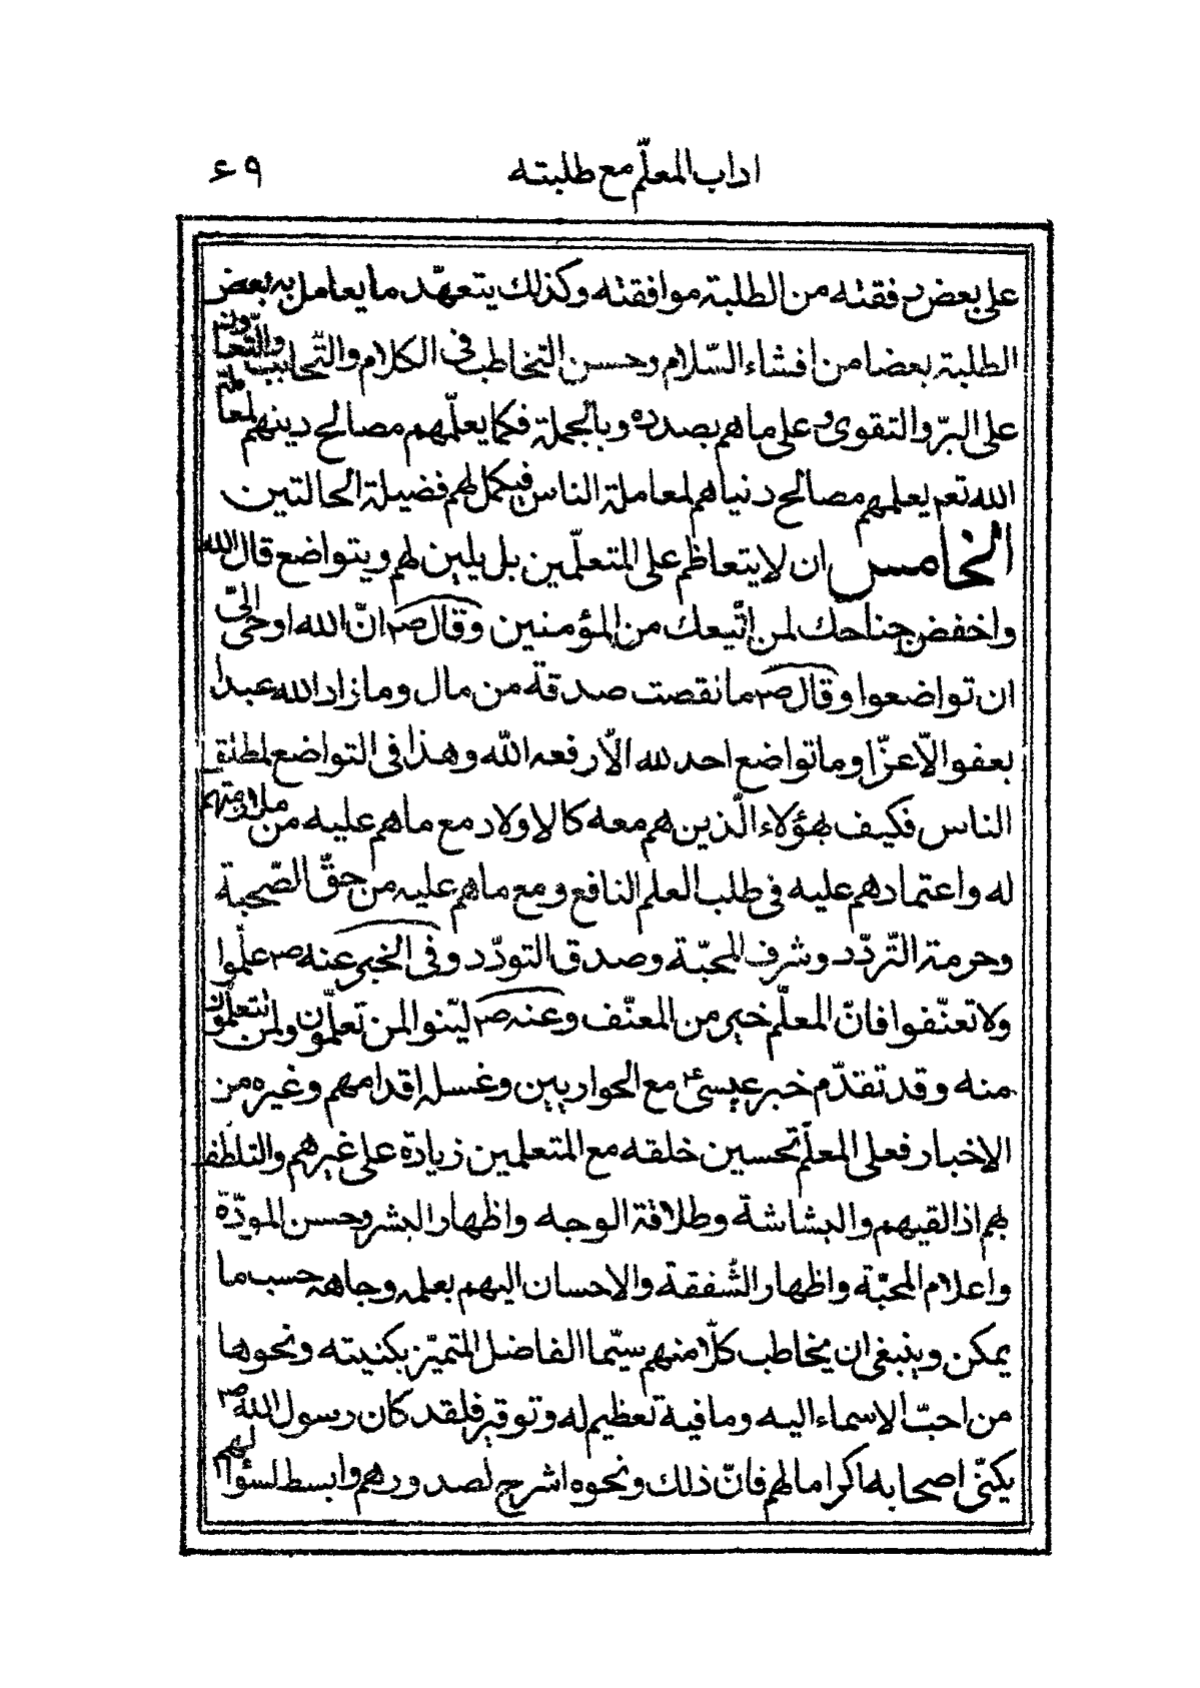 اداب المعلّم مع طلبته ۶۹
على بعض رفقته من الطلبة موافقته وكذلك يتعهّد ما يعامل به بعض
الطلبة بعضا من افشاء السّلام وحسن التخاطب فى الكلام والتّحابب والتّعاون
على البرّ والتقوى وعلى ما هم بصدده وبالجملة فكما يعلّمهم مصالح دينهم لمعاملة
الله تعم يعلمهم مصالح دنياهم لمعاملة الناس فيكمل لهم فضيلة الحالتين
الخامس ان لا يتعاظم على المتعلّمين بل يلين لهم ويتواضع قال الله
واخفض جناحك لمن اتّبعك من المؤمنين وقال ص انّ الله اوحى الىّ
ان تواضعوا وقال ص ما نقصت صدقة من مال وما زاد الله عبدا
بعفو الاّ عزّا وما تواضع احد لله الاّ رفعه اللّه وهذا فى التواضع لمطلق
الناس فكيف بهؤلاء الّذين هم معه كالاولاد مع ما هم عليه من ملازمتهم
له واعتمادهم عليه فى طلب العلم النافع ومع ما هم عليه من حقّ الصّحبة
وحرمة التّردّد وشرف المحبّة وصدق التودّد وفى الخبر عنه ص علّموا
ولا تعنّفوا فانّ المعلّم خير من المعنّف وعنه ص ليّنوا لمن تعلّمون ولمن تتعلّمون
منه وقد تقدّم خبر عيسىٰ ع مع الحواريين وغسله اقدامهم وغيره من
الاخبار فعلى المعلّم تحسين خلقه مع المتعلمين زيادة على غيرهم والتلطّف
بهم اذا لقيهم والبشاشة وطلاقة الوجه واظهار البشر وحسن المودّة
واعلام المحبّة واظهار الشّفقة والاحسان اليهم بعلمه وجاهه حسب ما
يمكن وينبغى ان يخاطب كلّا منهم سيّما الفاضل المتميّز بكنيته ونحوها
من احبّ الاسماء اليه وما فيه تعظيم له وتوقير فلقد كان رسول الله ص
يكنّى اصحابه اكراما لهم فانّ ذلك ونحوه اشرح لصدورهم وابسط لسؤالهم